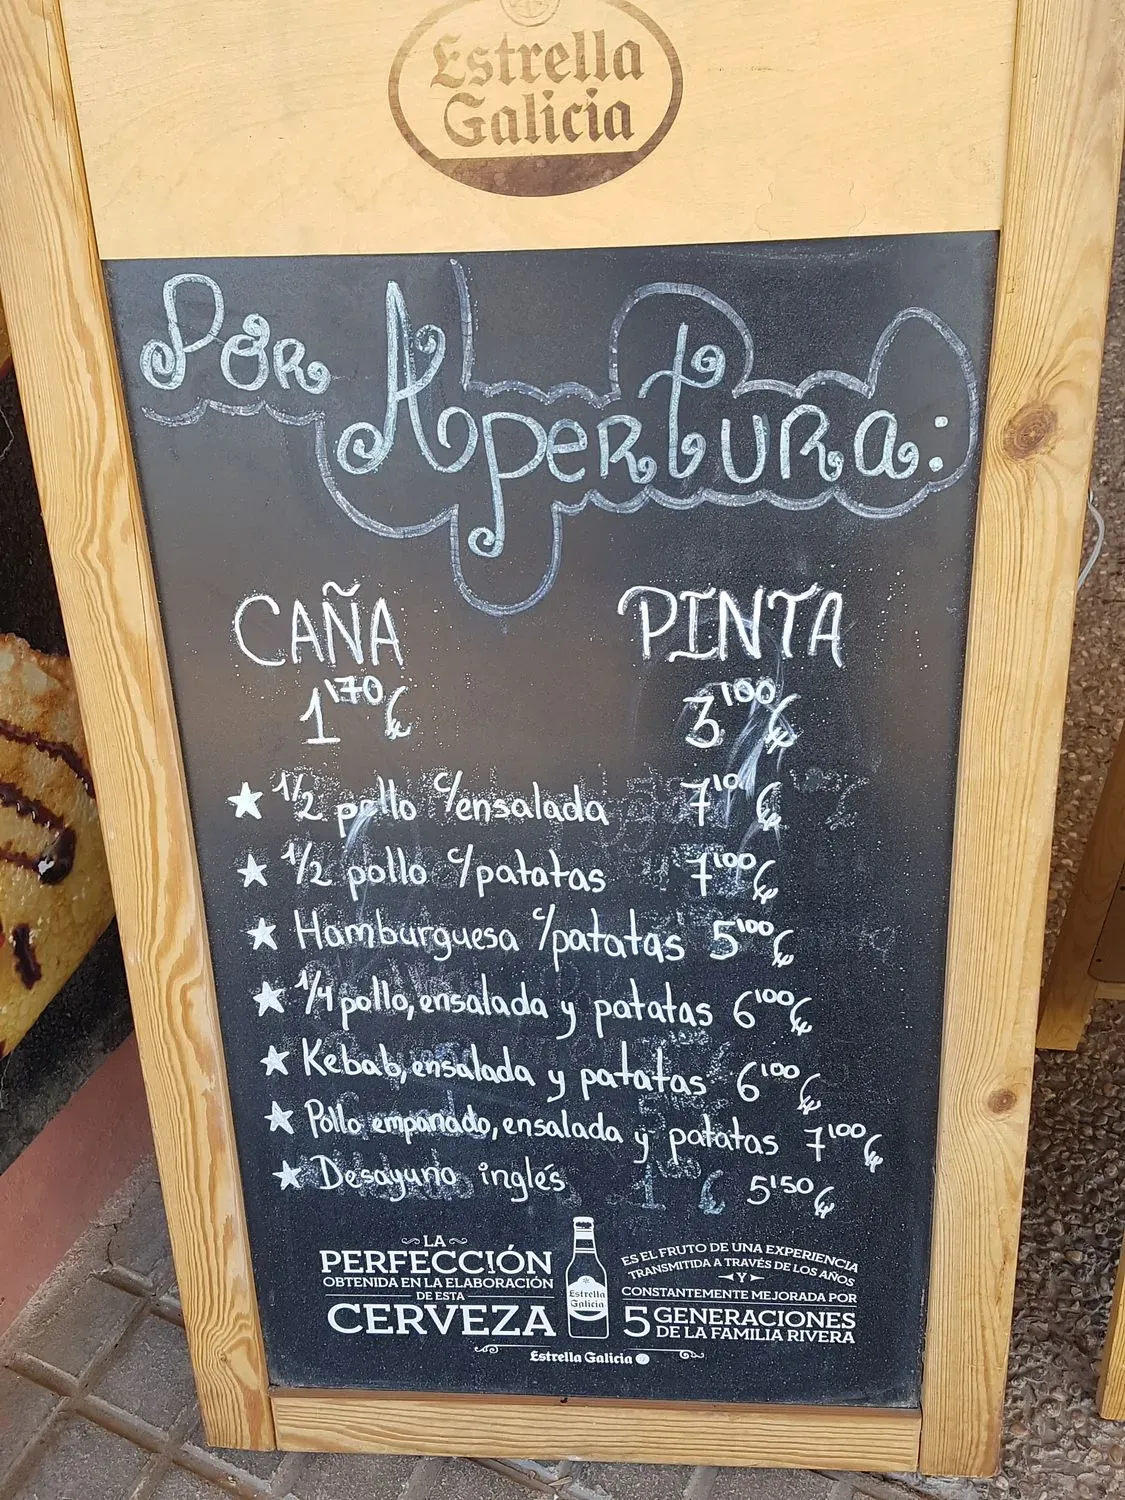 Estrella
Galicia
Por Apertura:
CAÑA PINTA
1'70€ 3'00€
★ 1/2 pollo c/ensalada 7'0€
★ 1/2 pollo c/patatas 7'00€
★ Hamburguesa c/patatas 5'00€
★ 1/4 pollo, ensalada y patatas 6'00€
★ Kebab, ensalada y patatas 6'00€
★ Pollo empanado, ensalada y patatas 7'00€
★ Desayuno inglés 5'50€
LA
PERFECCIÓN
OBTENIDA EN LA ELABORACIÓN
DE ESTA
CERVEZA
Estrella
Galicia
ES EL FRUTO DE UNA EXPERIENCIA
TRANSMITIDA A TRAVÉS DE LOS AÑOS
Y
CONSTANTEMENTE MEJORADA POR
5 GENERACIONES
DE LA FAMILIA RIVERA
Estrella Galicia